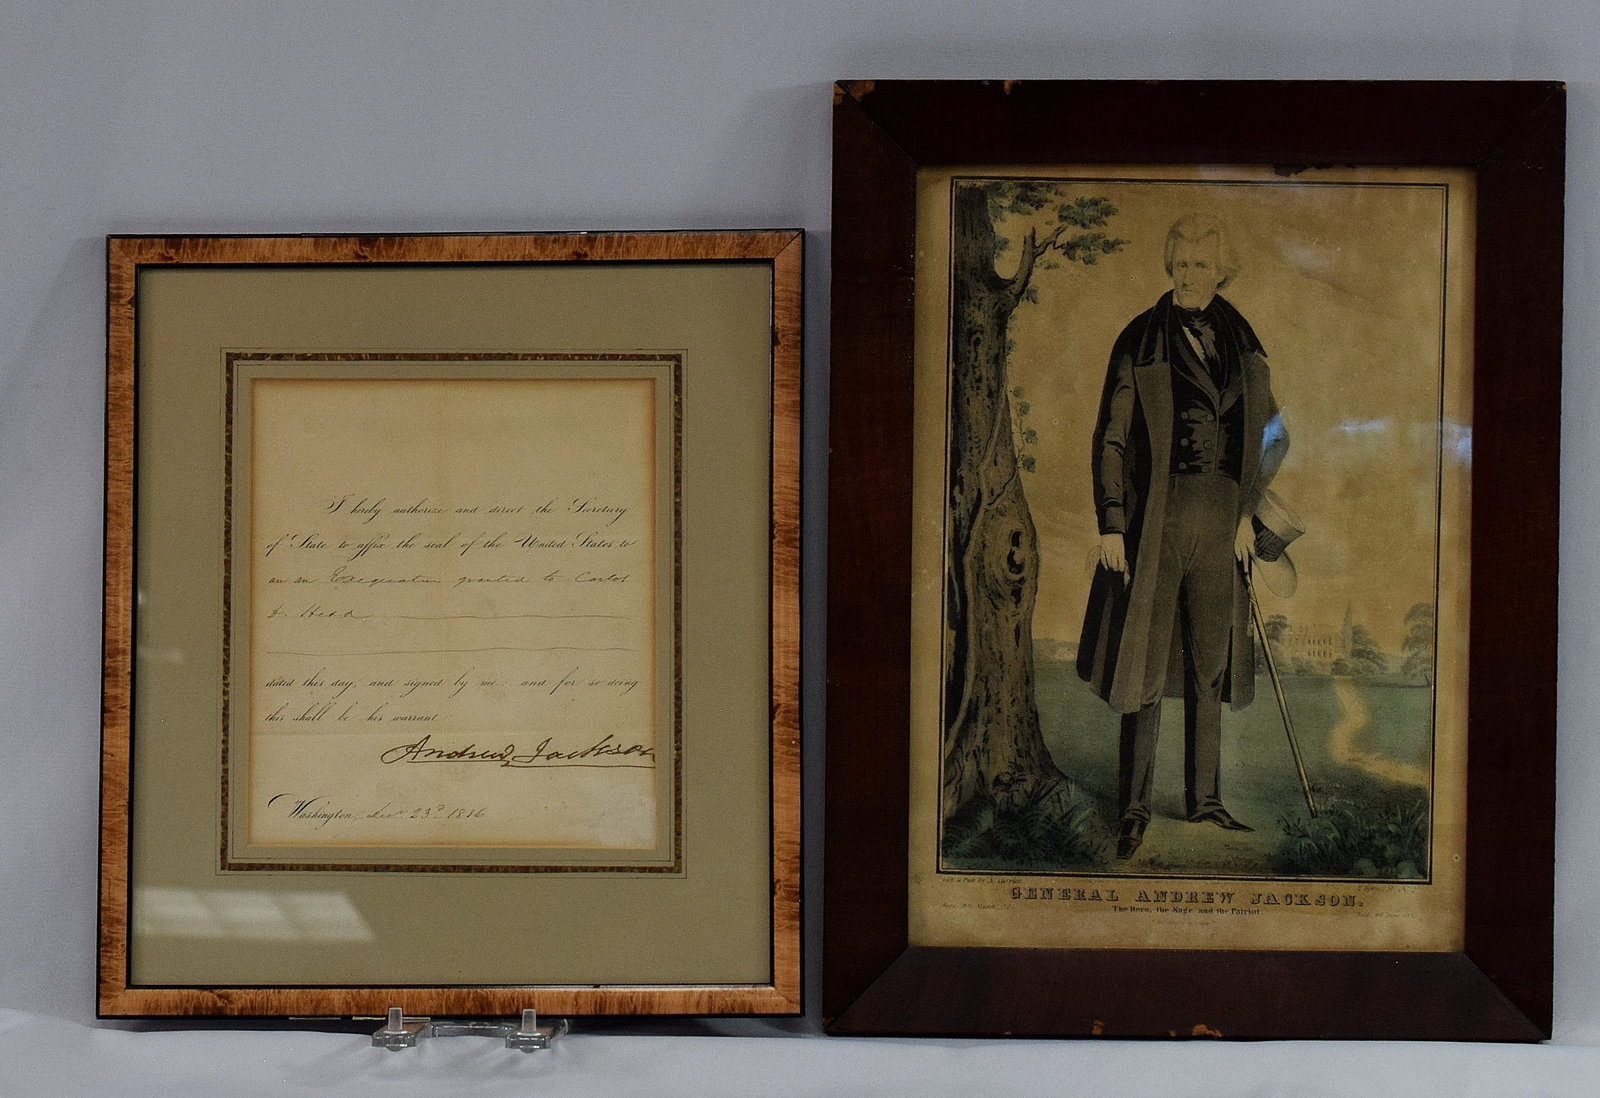 I hereby authorize and direct the Secretary
of State to affix the seal of the United States to
an Exequatur granted to Carlos
dated this day, and signed by me: and for so doing
this shall be his warrant.
Andrew Jackson
Washington, 23d 1836
Lith & Pub by N. Currier
GENERAL ANDREW JACKSON.
The Hero, the Sage and the Patriot